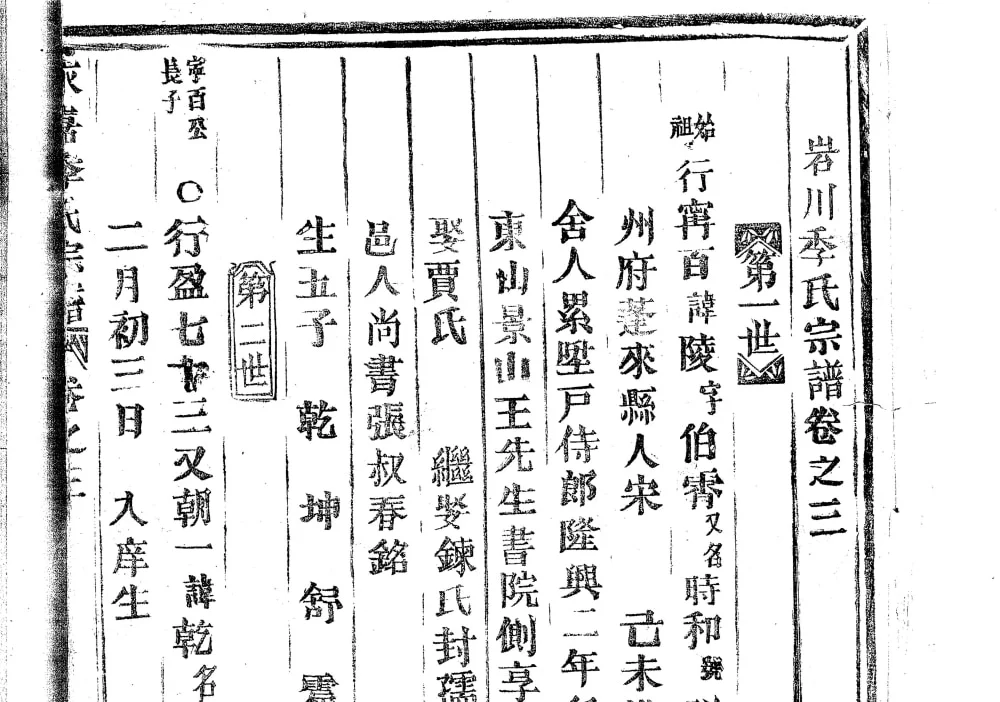 岩川季氏宗譜卷之三
第一世
始祖 行寗百諱陵字伯霄又名時和號
州府蓬來縣人宋 己未
舍人累陞戸侍郎隆興二年
東山景山王先生書院側享
娶賈氏 繼娶鍊氏封孺
邑人尚書張叔春銘
生五子 乾 坤 舒 霱
第二世
寜百公長子 〇行盈七十三又朝一諱乾名
二月初三日 入庠生
季氏宗譜 卷之三